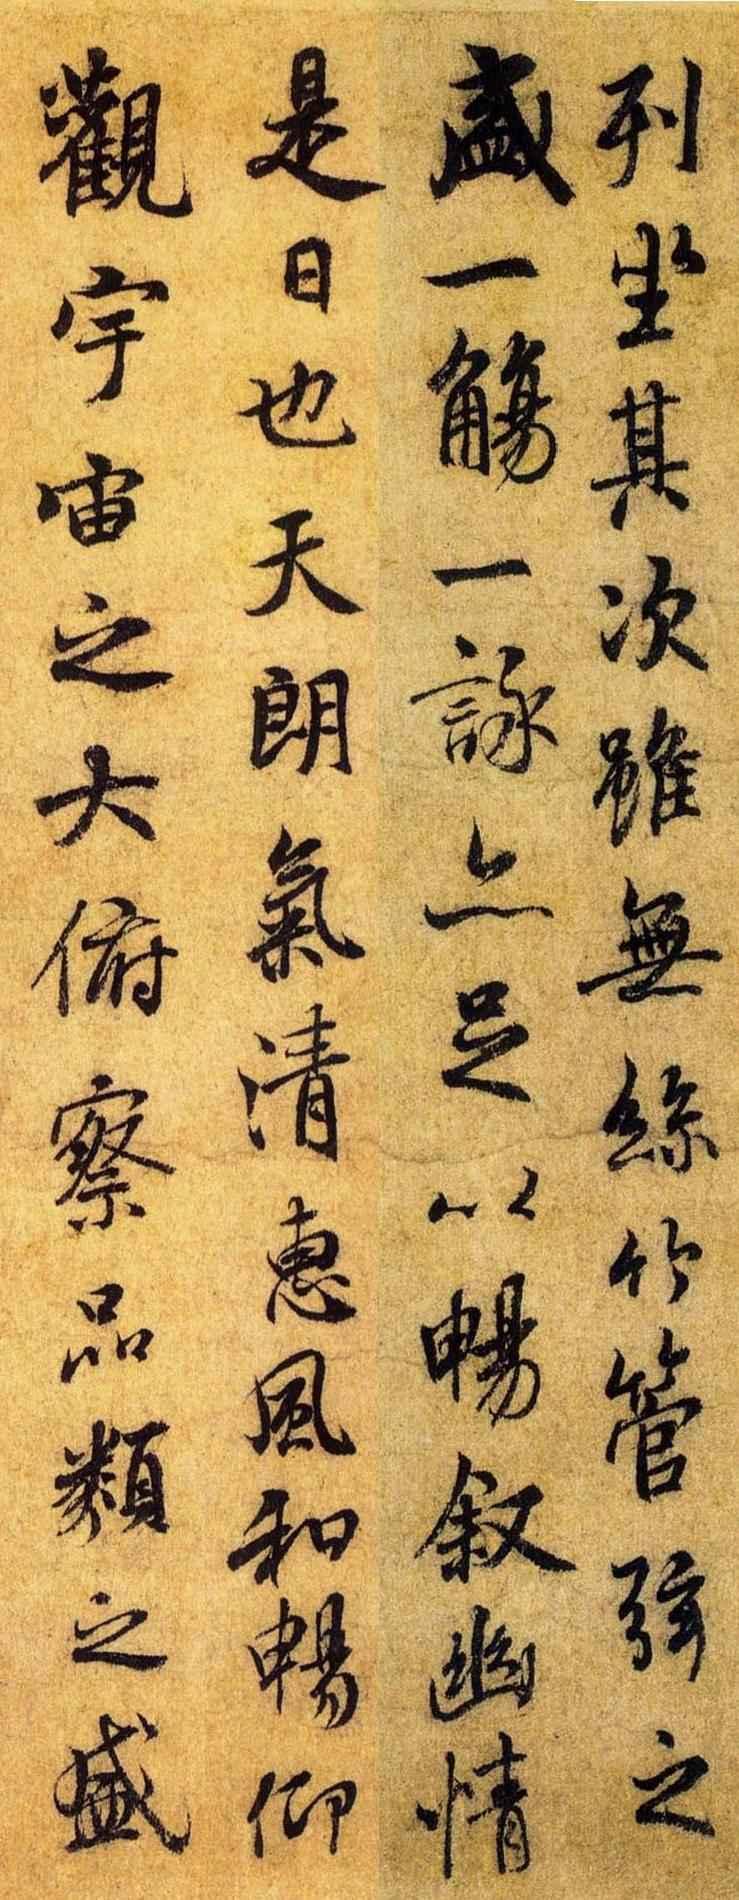 列坐其次雖無絲竹管弦之
盛一觴一詠亦足以暢叙幽情
是日也天朗氣清惠風和暢仰
觀宇宙之大俯察品類之盛